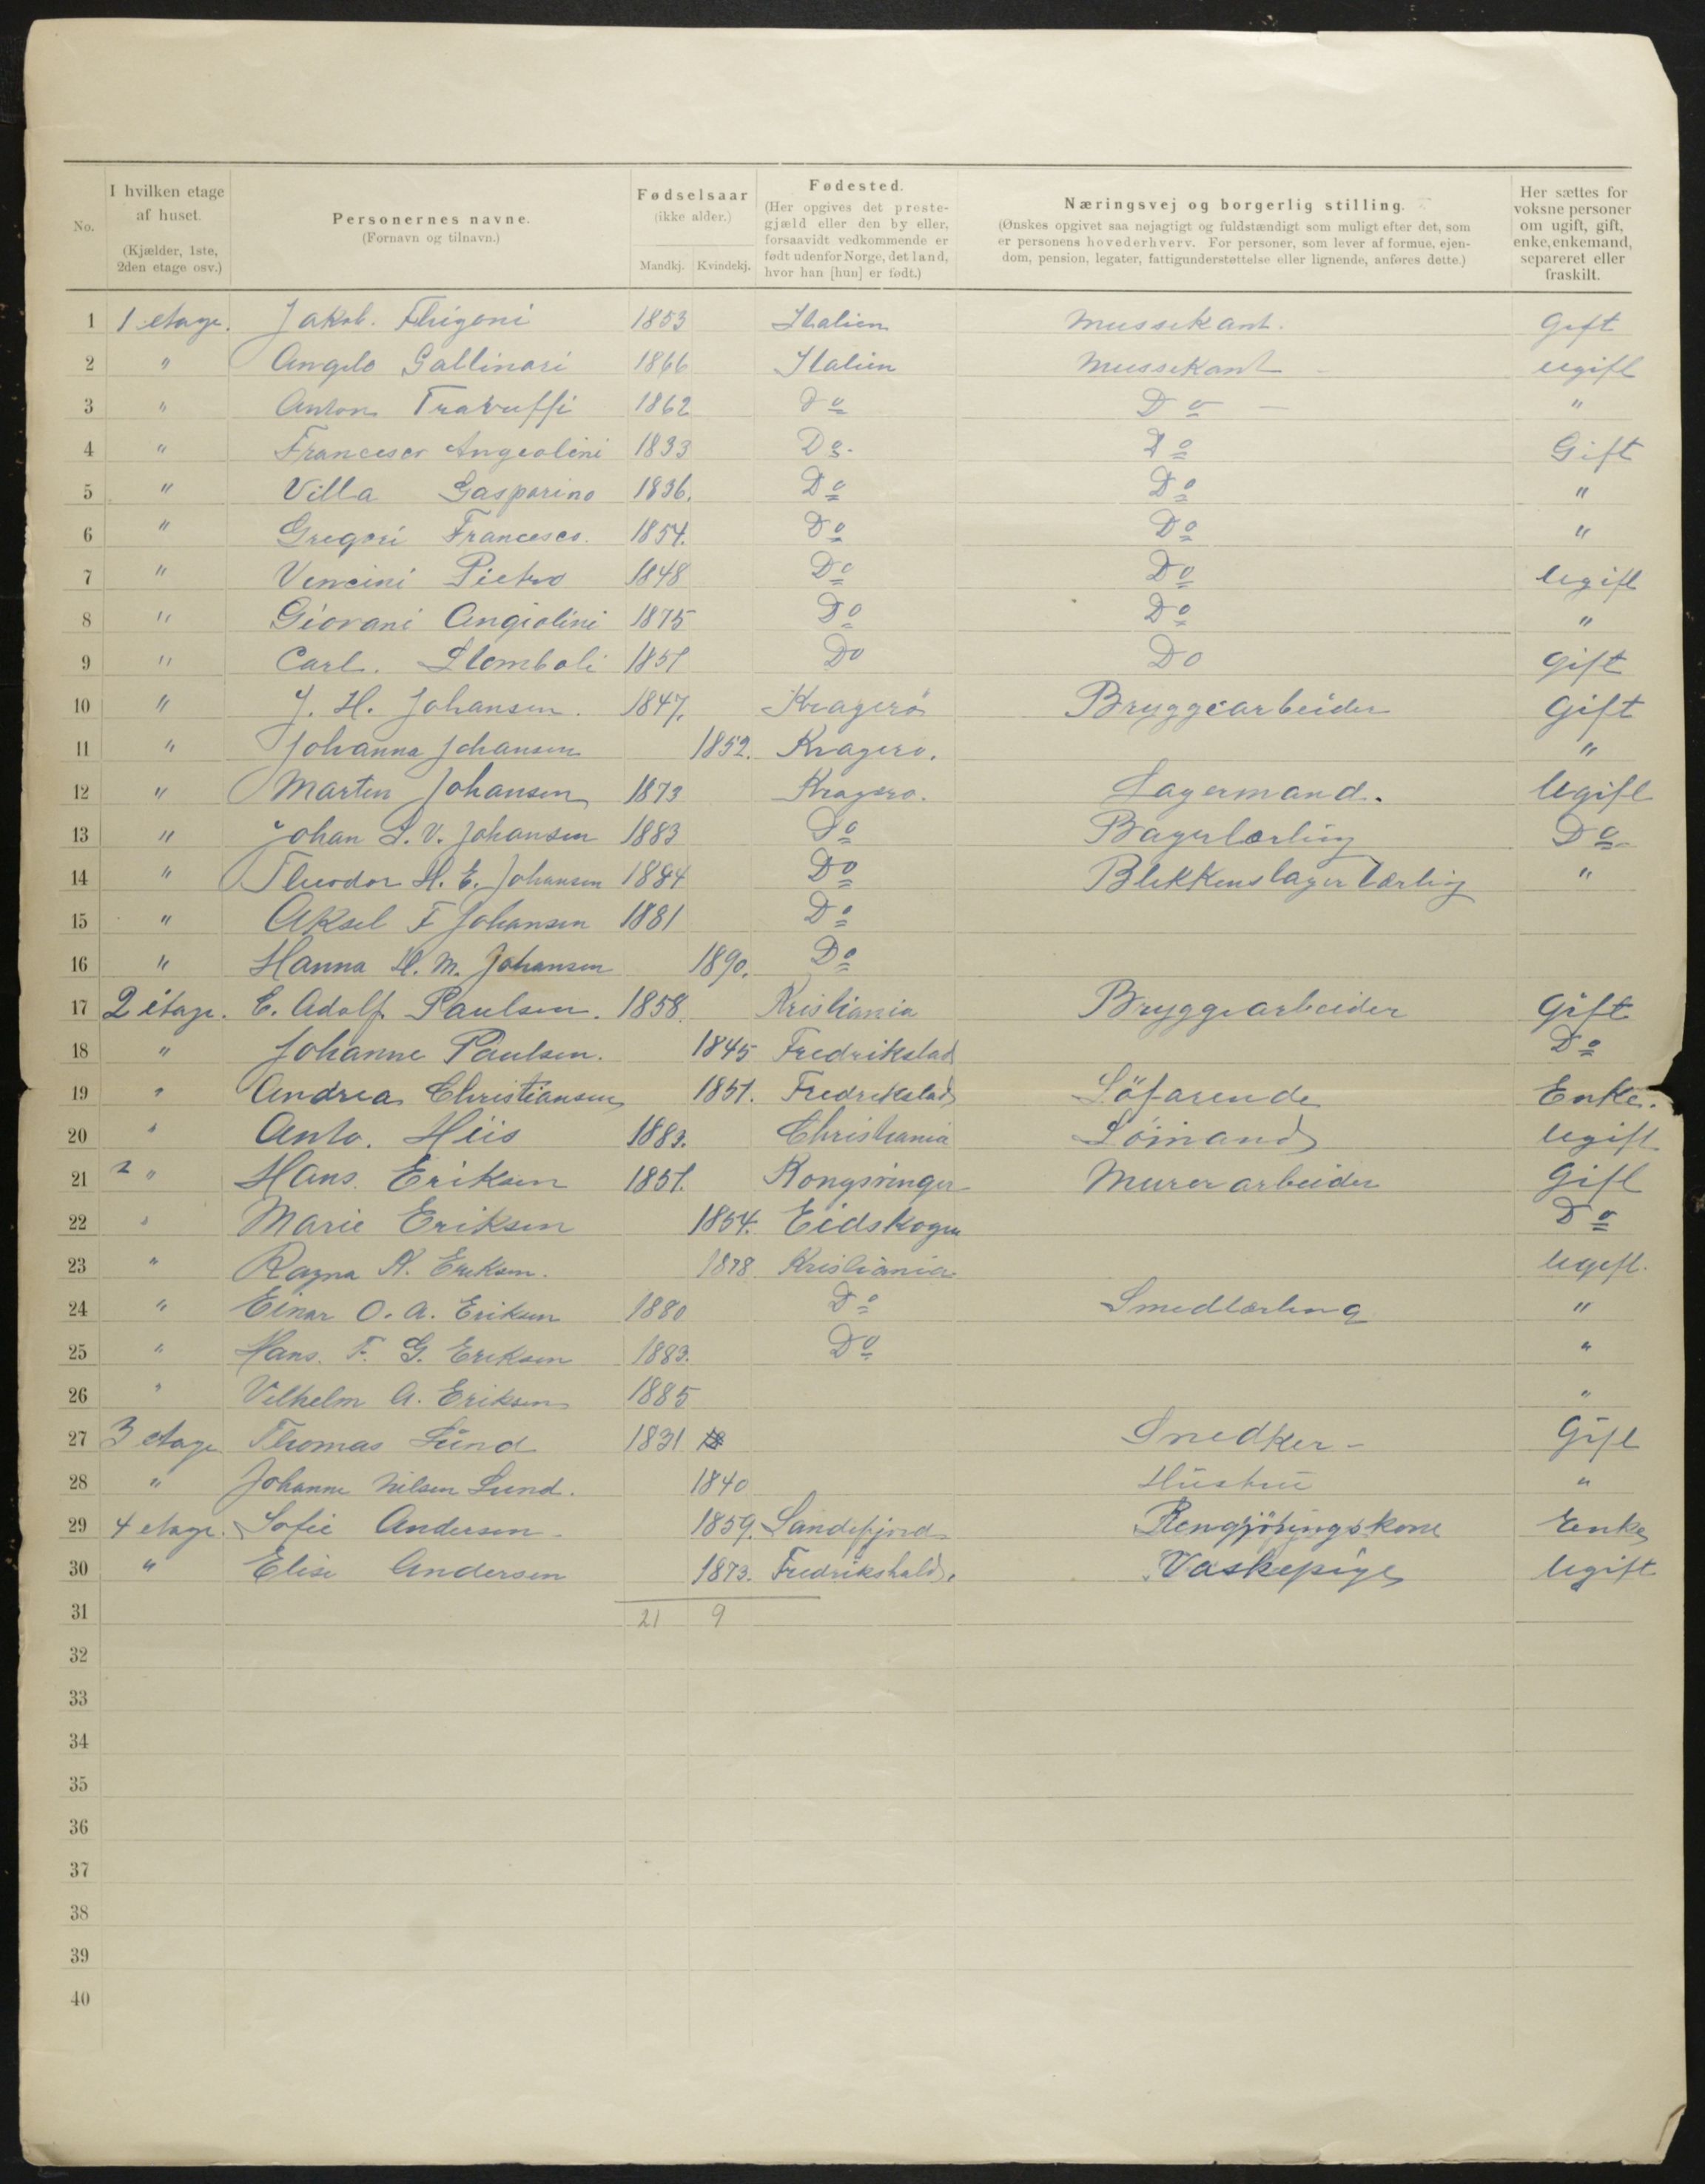 No. | I hvilken etage af huset. (Kjælder, 1ste, 2den etage osv.) | Personernes navne. (Fornavn og tilnavn.) | Fødselsaar (ikke alder.) Mandkj. Kvindekj. | Fødested. (Her opgives det prestegjæld eller den by eller, forsaavidt vedkommende er født udenfor Norge, det land, hvor han [hun] er født.) | Næringsvej og borgerlig stilling. (Ønskes opgivet saa nøjagtigt og fuldstændigt som muligt efter det, som er personens hovederhverv. For personer, som lever af formue, ejendom, pension, legater, fattigunderstøttelse eller lignende, anføres dette.) | Her sættes for voksne personer om ugift, gift, enke, enkemand, separeret eller fraskilt.
1 1 etage. Jakob. Fhigoni 1853 Italien Mussikant. Gift
2 " Angelo Gallinari 1866 Italien Mussikant - ugift
3 " Anton Travuffi 1862 Do Do - "
4 " Francesco Angeolini 1833 Do. Do Gift
5 " Villa Gasparino 1836. Do Do "
6 " Gregori Francesco. 1854. Do Do "
7 " Vencini Pietro 1848 Do Do Ugift
8 " Giovani Angiolini 1875 Do Do "
9 " Carl. Stomboli 1851 Do Do gift
10 " J. H. Johansen. 1847. Kragerö Bryggearbeider Gift
11 " Johanna Johansen 1852. Kragero. "
12 " Marten Johansen 1873 Kragero. Lagermand. Ugift
13 " Johan L. V. Johansen 1883 Do Bagerlærling Do
14 " Theodor H. E. Johansen 1884 Do Blikkenslager Lærling "
15 " Aksel F Johansen 1881 Do
16 " Hanna H. M. Johansen 1890. Do
17 2 etage. E. Adolf. Paulsen. 1858. Kristiania Bryggearbeider Gift
18 " Johanne Paulsen. 1845 Fredrikstad Do
19 " Andrea Christiansen 1851. Fredrikstad Söfarende Enke.
20 " Anto. Hiis 1883. Christiania Sömand Ugift
21 2 " Hans. Eriksen 1851. Kongsvinger Murerarbeider Gift
22 " Marie Eriksen 1854. Eidskogen Do
23 " Ragna K. Eriksen. 1878 Kristiania Ugift.
24 " Einar O. A. Eriksen 1880 Do Smedlærling "
25 " Hans. F. G. Eriksen 1883. Do "
26 " Vilhelm A. Eriksen 1885 "
27 3 etage Thomas Lund 1831 Snedker - Gift
28 " Johanne Nilsen Lund. 1840 Hustru "
29 4 etage. Sofie Andersen - 1859. Sandefjord Rengjöringskone Enke
30 " Elise Andersen 1873. Fredrikshald. Vaskepige Ugift
31 21 9
32
33
34
35
36
37
38
39
40